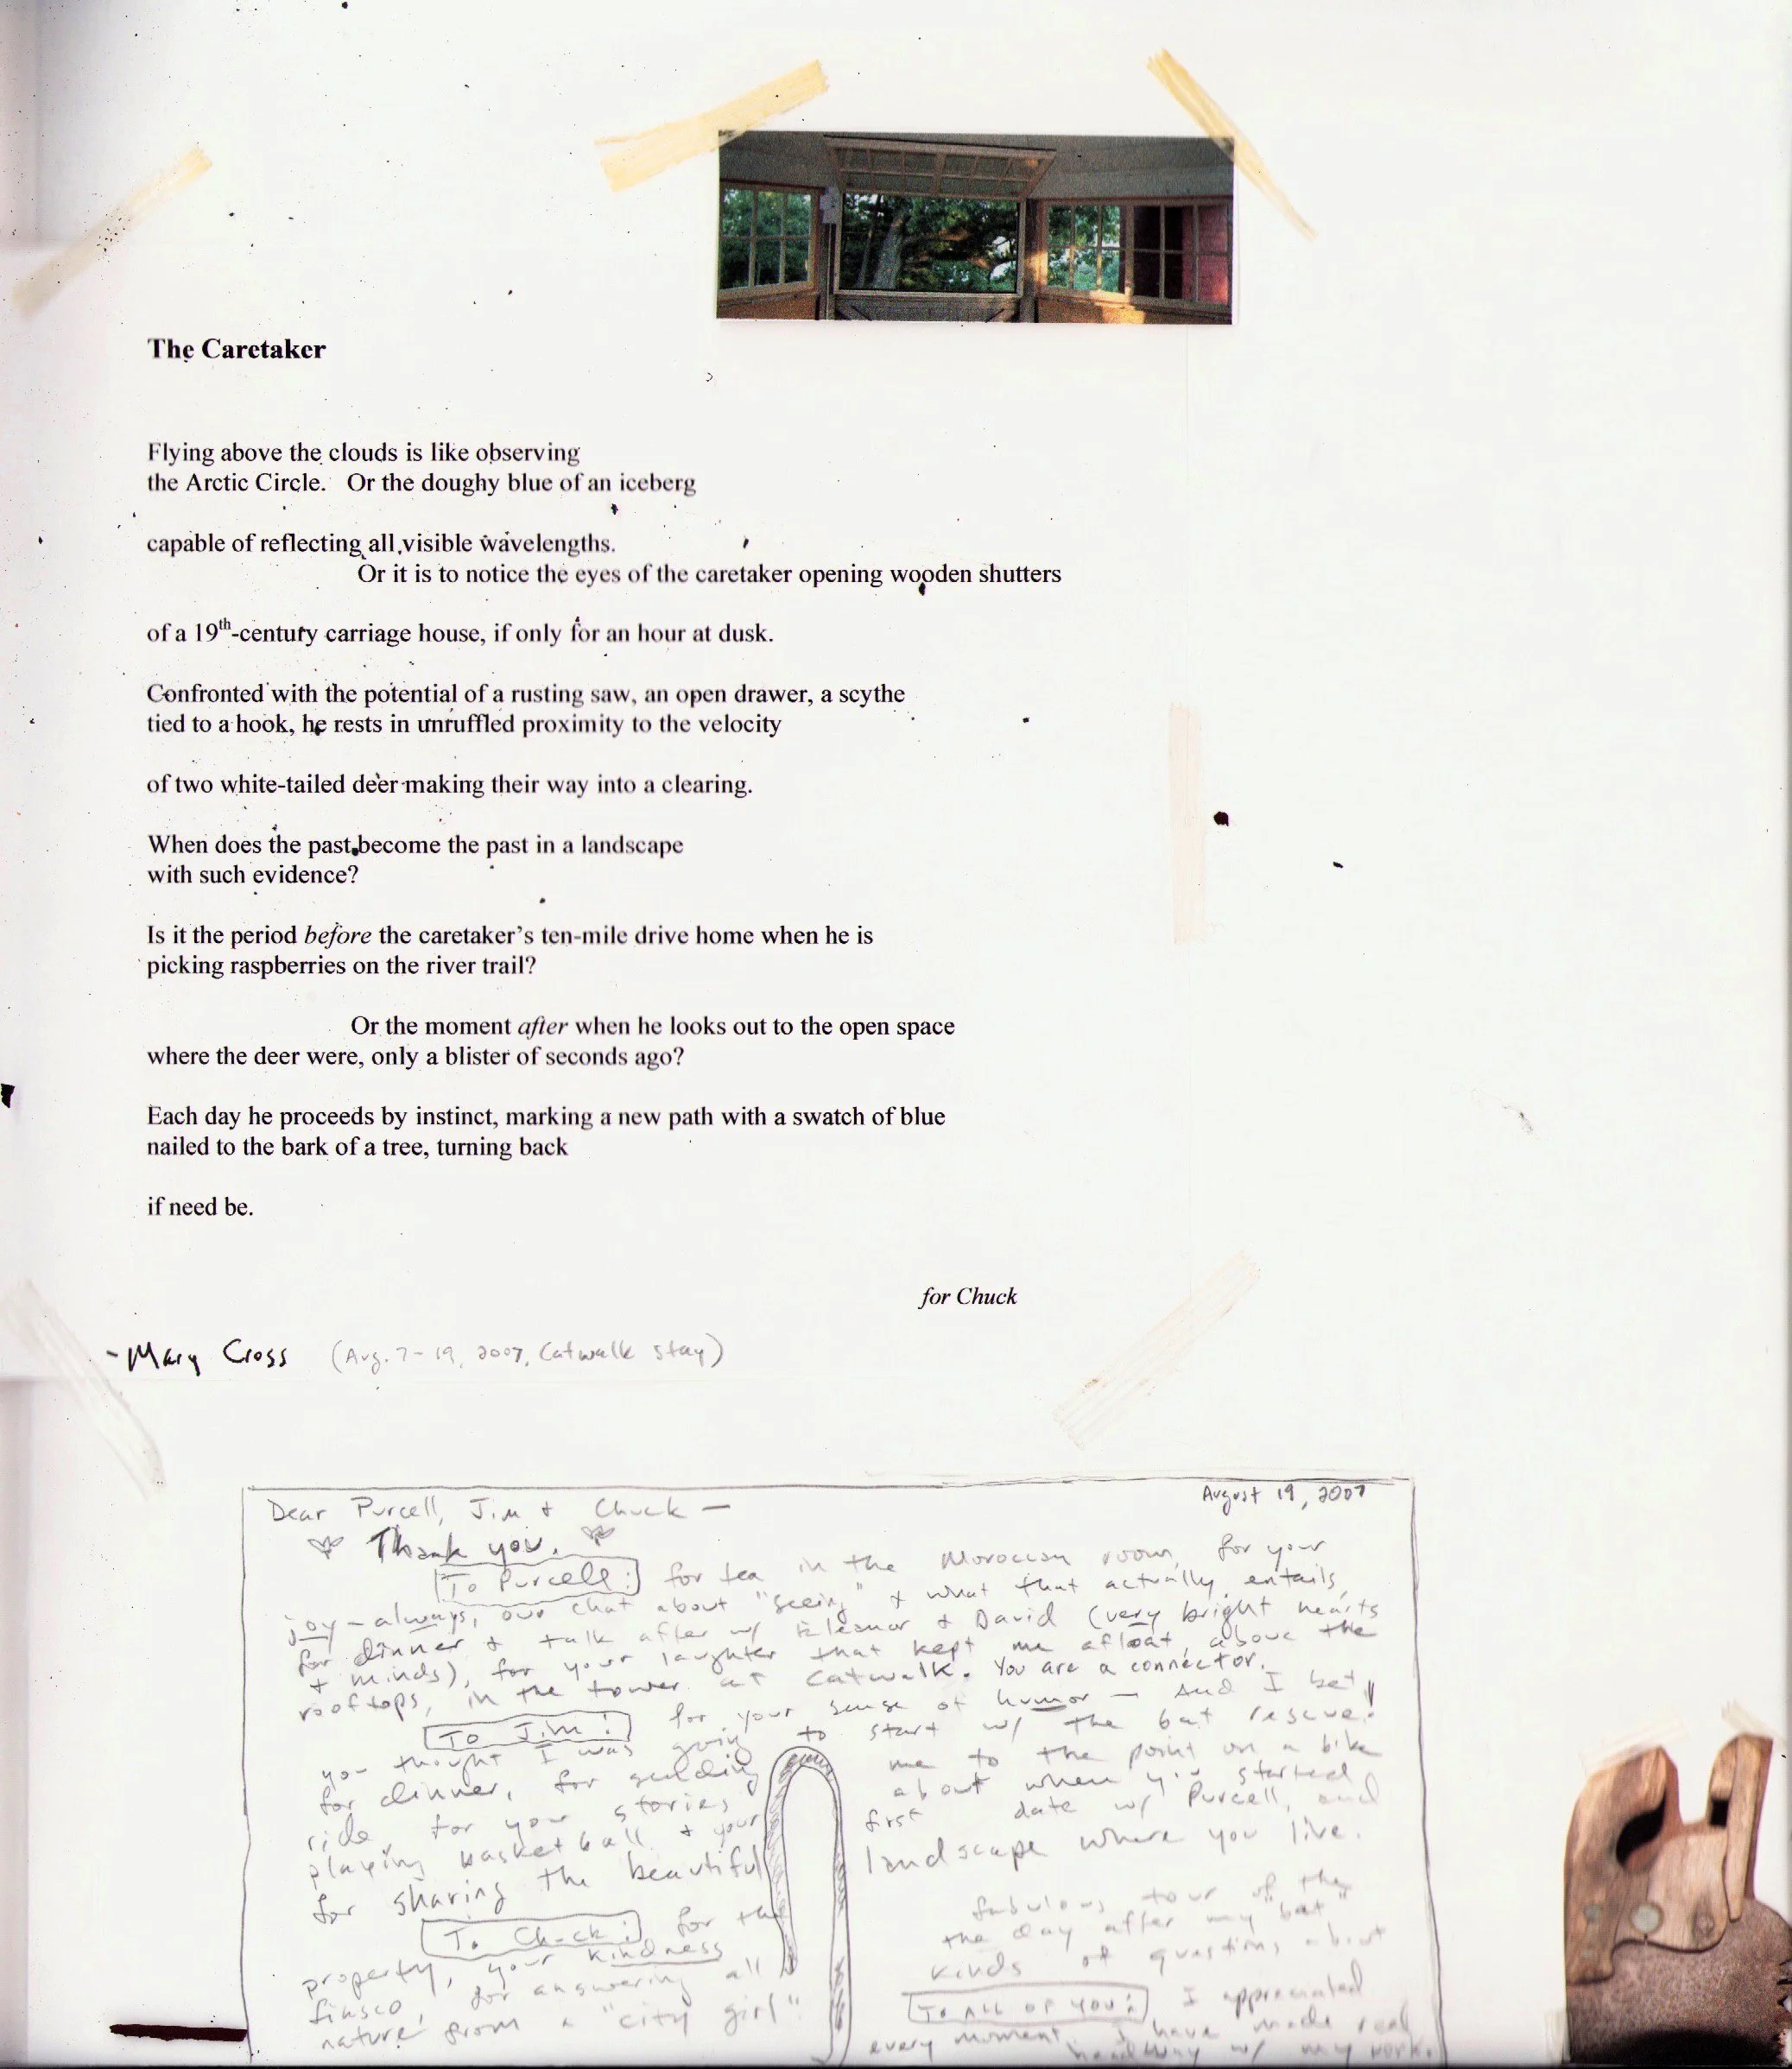 The Caretaker
Flying above the clouds is like observing
the Arctic Circle. Or the doughy blue of an iceberg
capable of reflecting all visible wavelengths.
Or it is to notice the eyes of the caretaker opening wooden shutters
of a 19th-century carriage house, if only for an hour at dusk.
Confronted with the potential of a rusting saw, an open drawer, a scythe
tied to a hook, he rests in unruffled proximity to the velocity
of two white-tailed deer making their way into a clearing.
When does the past become the past in a landscape
with such evidence?
Is it the period before the caretaker's ten-mile drive home when he is
picking raspberries on the river trail?
Or the moment after when he looks out to the open space
where the deer were, only a blister of seconds ago?
Each day he proceeds by instinct, marking a new path with a swatch of blue
nailed to the bark of a tree, turning back
if need be.
for Chuck
- Mary Cross (Aug. 7-19, 2007, Catwalk stay)
August 19, 2007
Dear Purcell, Jim + Chuck —
Thank you.
To Purcell: for tea in the Moroccan room, for your
joy - always, our chat about "seeing" + what that actually entails,
for dinner + talk after w/ Eleanor + David (very bright hearts
+ minds), for your laughter that kept me afloat, above the
rooftops, in the tower at Catwalk. You are a connector.
To Jim: for your sense of humor — And I bet
you thought I was going to start w/ the bat rescue!
for dinner, for guiding me to the point on a bike
ride, for your stories about when you started
playing basketball + your first date w/ Purcell, and
for sharing the beautiful landscape where you live.
To Chuck: for the fabulous tour of the
property, your kindness the day after my "bat"
fiasco, for answering all kinds of questions about
nature from a "city girl".
To ALL OF YOU: I appreciated
every moment. I have made real
headway w/ my work.